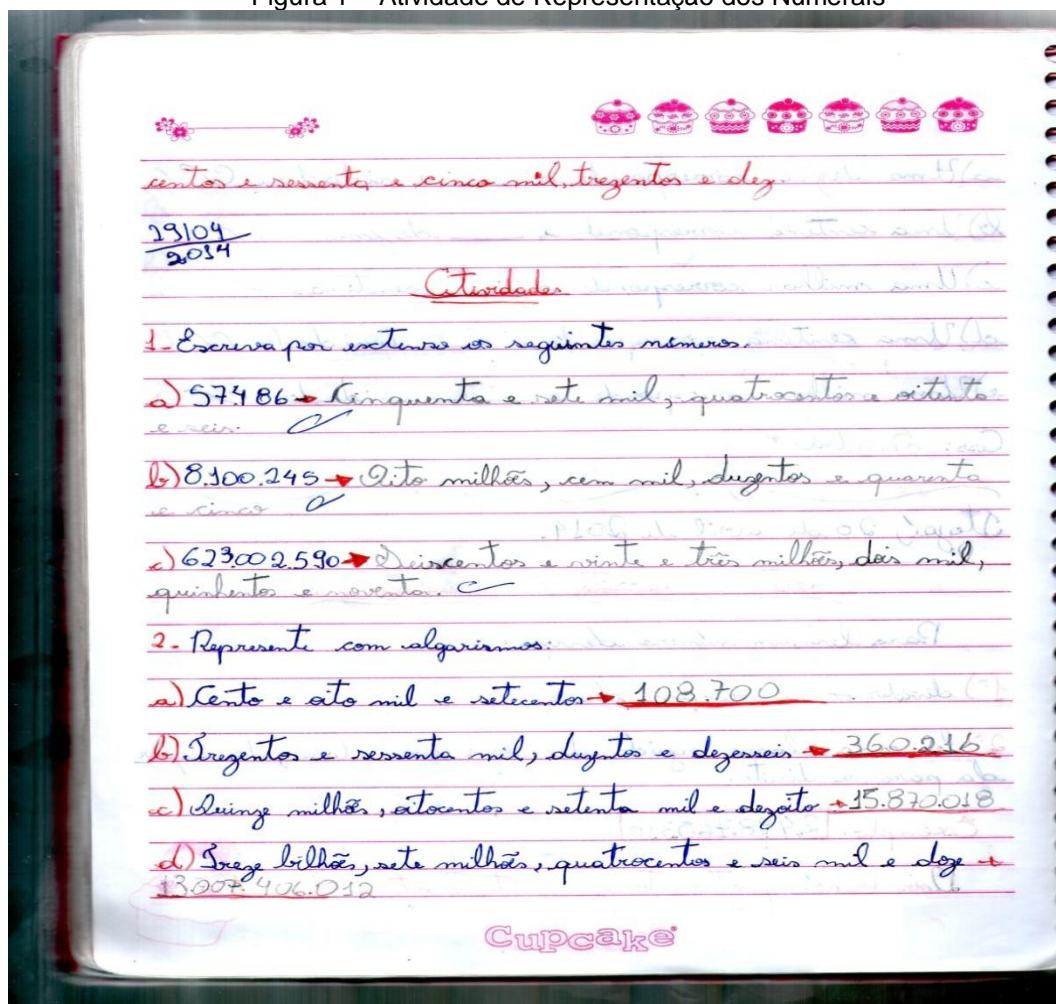 Figura 1 – Atividade de Representação dos Numerais
centos e sessenta e cinco mil, trezentos e dez.
29/04
2014
Atividades
1- Escreva por extenso os seguintes números.
a) 57.486 → Cinquenta e sete mil, quatrocentos e oitenta
e seis.
b) 8.100.245 → Oito milhões, cem mil, duzentos e quarenta
e cinco
c) 623.002.590 → Seiscentos e vinte e três milhões, dois mil,
quinhentos e noventa.
2- Represente com algarismos:
a) Cento e oito mil e setecentos → 108.700
b) Trezentos e sessenta mil, duzentos e dezesseis → 360.216
c) Quinze milhões, oitocentos e setenta mil e dezoito → 15.870.018
d) Treze bilhões, sete milhões, quatrocentos e seis mil e doze →
13.007.406.012
Cupcake